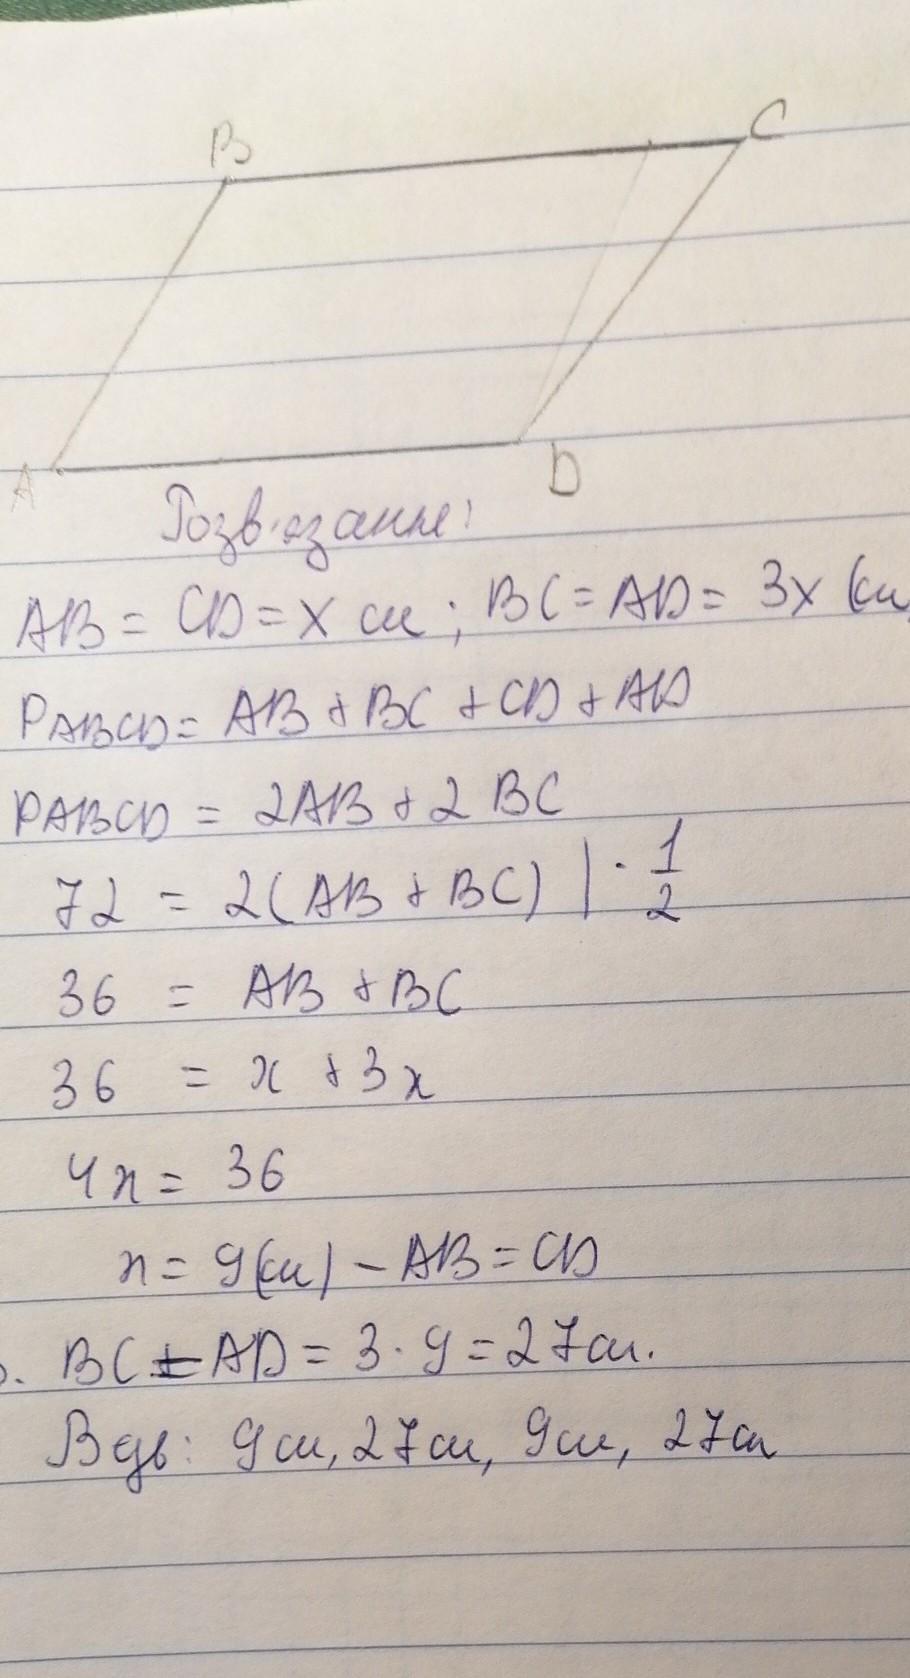 B
C
A
D
Розв'язання:
AB = CD = x см; BC = AD = 3x (см
PABCD = AB + BC + CD + AD
PABCD = 2AB + 2BC
72 = 2(AB + BC) | · 1/2
36 = AB + BC
36 = x + 3x
4x = 36
x = 9(см) - AB = CD
BC = AD = 3 · 9 = 27см.
Відь: 9см, 27см, 9см, 27см